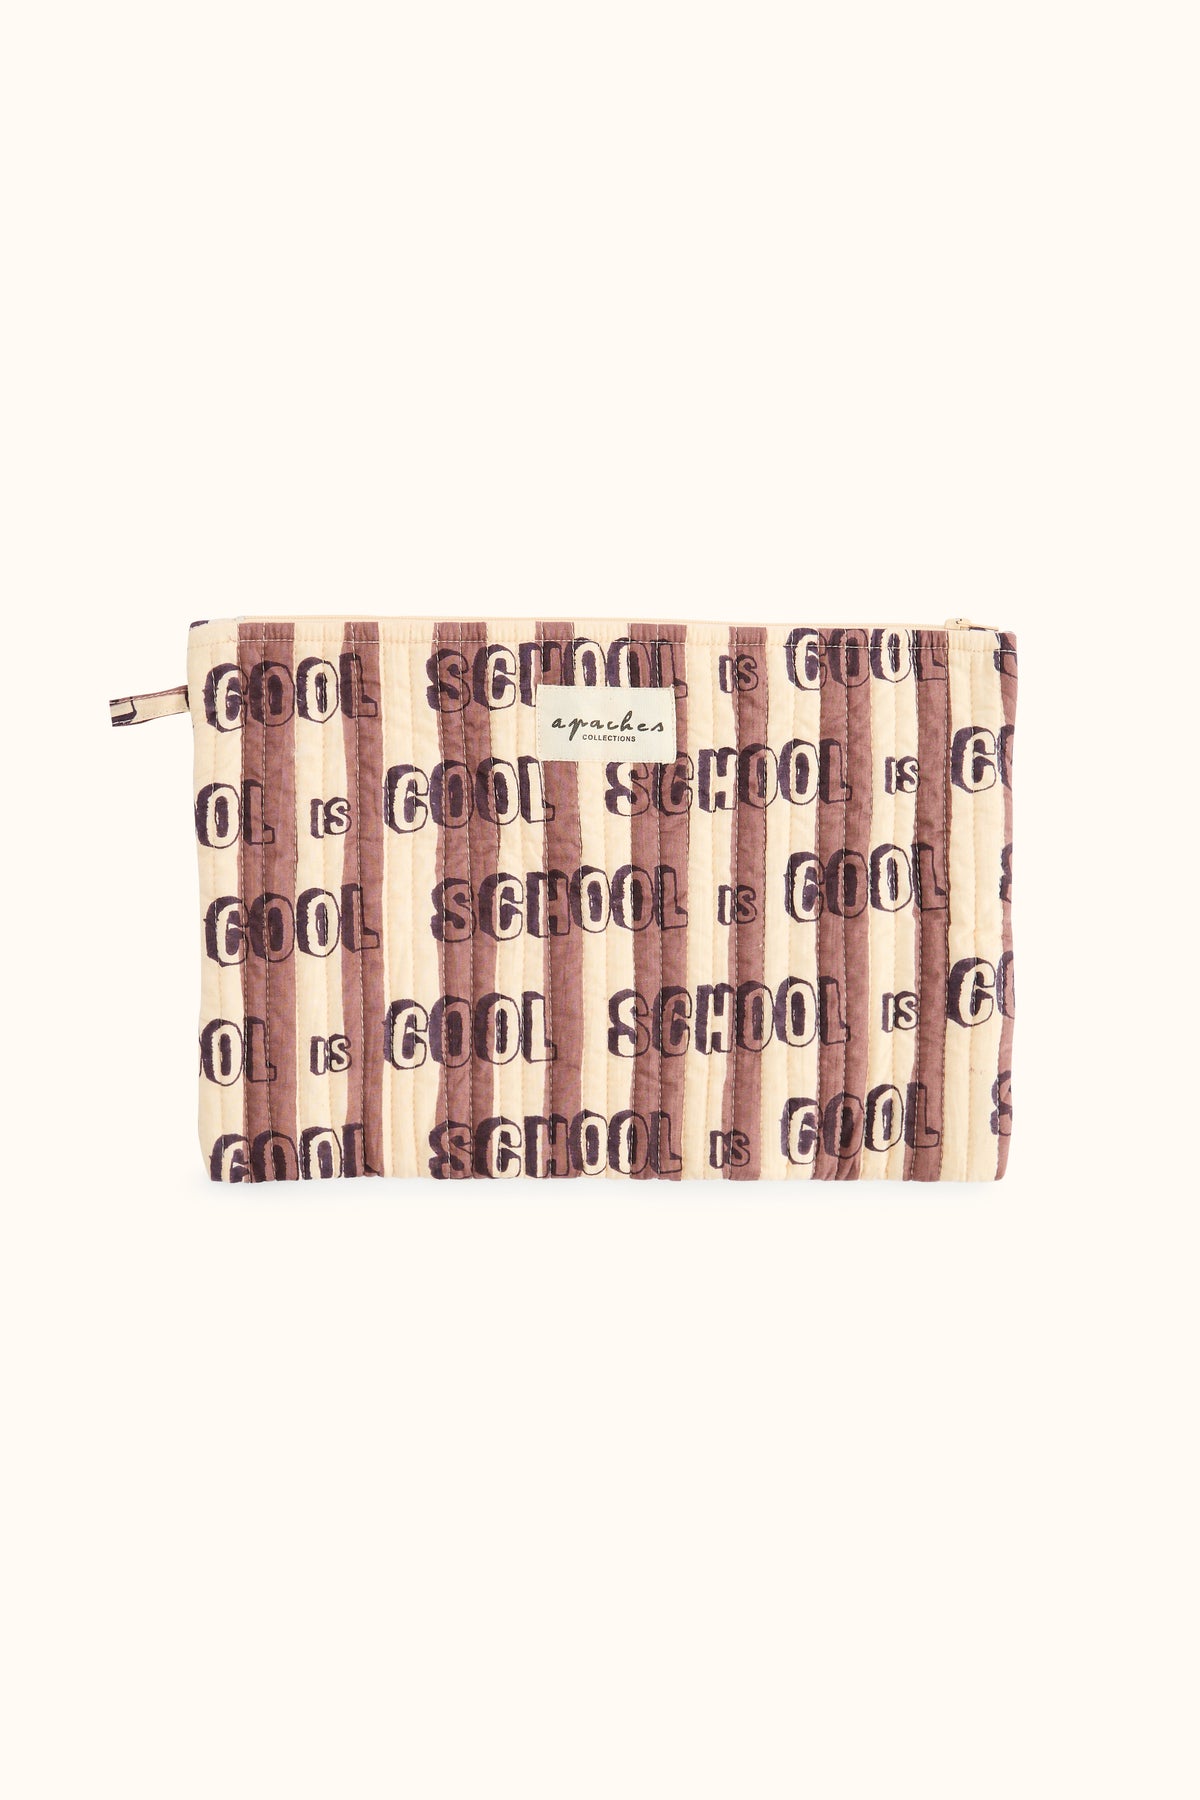 COOL SCHOOL IS COOL
apaches
COLLECTIONS
OL IS COOL SCHOOL IS CO
COOL SCHOOL IS COOL S
OOL IS COOL SCHOOL IS CO
COOL SCHOOL IS COOL S